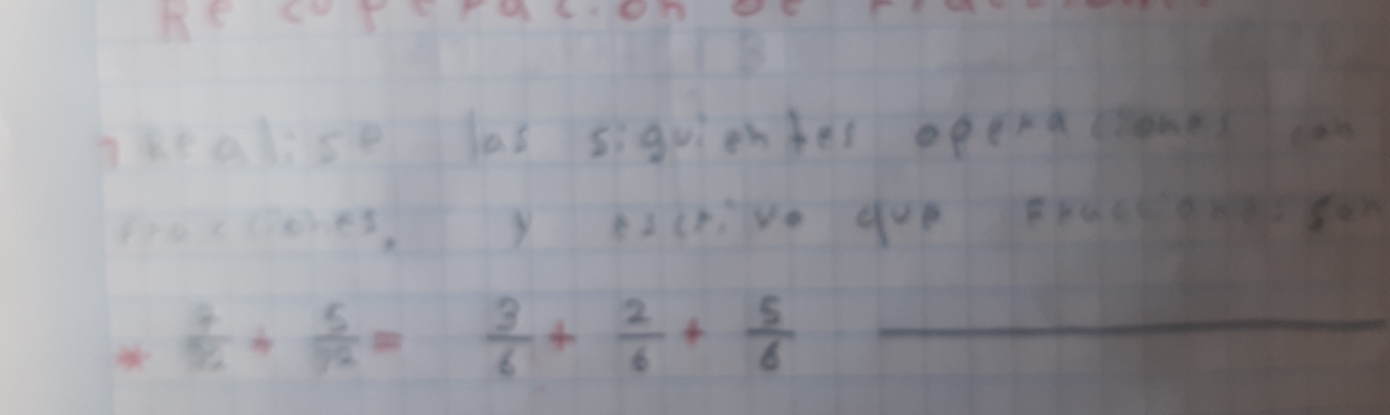 Recoperación de Fracciones
1 Realiso las siguientes operaciones con
fracciones. y escrivo que Fracciones son
* + = 3/6 + 2/6 + 5/6